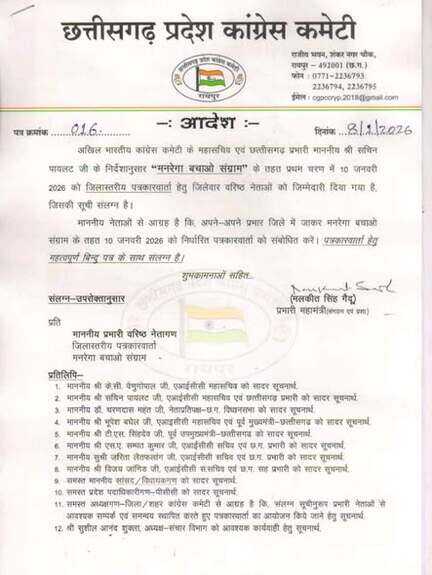 छत्तीसगढ़ प्रदेश कांग्रेस कमेटी
राजीव भवन, शंकर नगर चौक,
रायपुर – 492001 (छ.ग.)
फोन : 0771-2236793
2236794, 2236795
ईमेल : cgpccryp.2018@gmail.com
रायपुर
पत्र क्रमांक ....016.....
–: आदेश :–
दिनांक ..8/1/2026
अखिल भारतीय कांग्रेस कमेटी के महासचिव एवं छत्तीसगढ़ प्रभारी माननीय श्री सचिन
पायलट जी के निर्देशानुसार “मनरेगा बचाओ संग्राम” के तहत प्रथम चरण में 10 जनवरी
2026 को जिलास्तरीय पत्रकारवार्ता हेतु जिलेवार वरिष्ठ नेताओं को जिम्मेदारी दिया गया है,
जिसकी सूची संलग्न है।
माननीय नेताओं से आग्रह है कि, अपने–अपने प्रभार जिले में जाकर मनरेगा बचाओ
संग्राम के तहत 10 जनवरी 2026 को निर्धारित पत्रकारवार्ता को संबोधित करें। पत्रकारवार्ता हेतु
महत्वपूर्ण बिन्दु पत्र के साथ संलग्न है।
शुभकामनाओं सहित..
संलग्न–उपरोक्तानुसार
(मलकीत सिंह गैदू)
प्रभारी महामंत्री(संगठन एवं प्रशा)
प्रति
माननीय प्रभारी वरिष्ठ नेतागण
जिलास्तरीय पत्रकारवार्ता
मनरेगा बचाओ संग्राम
रायपुर
प्रतिलिपि–
1. माननीय श्री के.सी. वेणुगोपाल जी, एआईसीसी महासचिव को सादर सूचनार्थ.
2. माननीय श्री सचिन पायलट जी, एआईसीसी महासचिव एवं छत्तीसगढ़ प्रभारी को सादर सूचनार्थ.
3. माननीय डॉ. चरणदास महंत जी, नेताप्रतिपक्ष–छ.ग. विधानसभा को सादर सूचनार्थ.
4. माननीय श्री भूपेश बघेल जी, एआईसीसी महासचिव एवं पूर्व मुख्यमंत्री–छत्तीसगढ़ को सादर सूचनार्थ.
5. माननीय श्री टी.एस. सिंहदेव जी, पूर्व उपमुख्यमंत्री–छत्तीसगढ़ को सादर सूचनार्थ.
6. माननीय श्री एस.ए. सम्पत कुमार जी, एआईसीसी सचिव एवं छ.ग. प्रभारी को सादर सूचनार्थ.
7. माननीय सुश्री जरिता लैतफलांग जी, एआईसीसी सचिव एवं छ.ग. प्रभारी को सादर सूचनार्थ.
8. माननीय श्री विजय जांगिड जी, एआईसीसी स.सचिव एवं छ.ग. सह प्रभारी को सादर सूचनार्थ.
9. समस्त माननीय सांसद/विधायकगण को सादर सूचनार्थ.
10. समस्त प्रदेश पदाधिकारीगण–पीसीसी को सादर सूचनार्थ.
11. समस्त अध्यक्षगण–जिला/शहर कांग्रेस कमेटी से आग्रह है कि, संलग्न सूचीनुरूप प्रभारी नेताओं से
आवश्यक सम्पर्क एवं समन्वय स्थापित करते हुए पत्रकारवार्ता का आयोजन किये जाने हेतु सूचनार्थ.
12. श्री सुशील आनंद शुक्ला, अध्यक्ष–संचार विभाग को आवश्यक कार्यवाही हेतु सूचनार्थ.